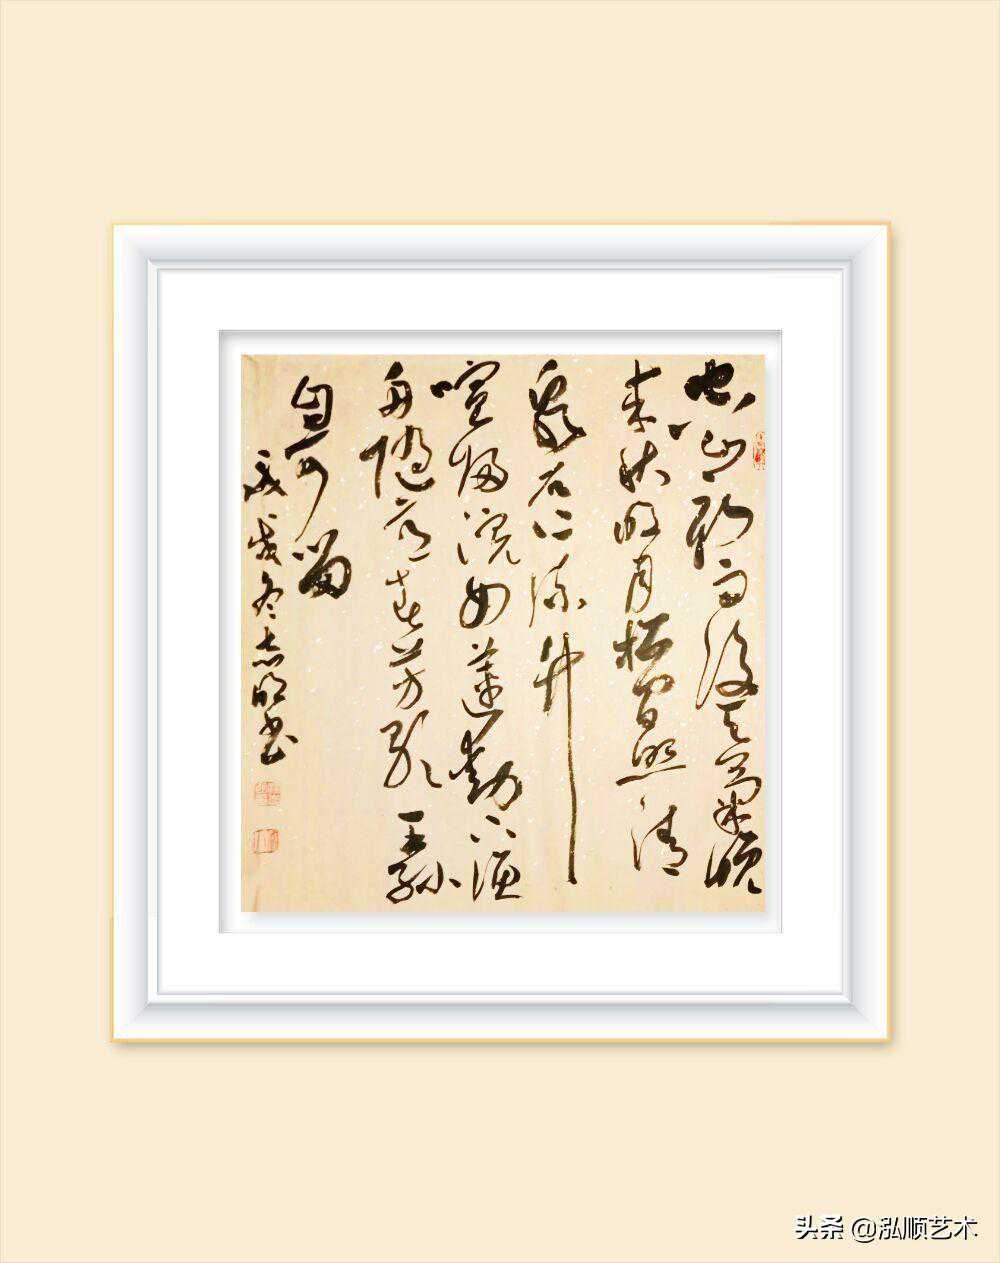 空山新雨後天氣晚
来秋明月松間照清
泉石上流竹
喧歸浣女蓮動下漁
舟隨意春芳歇王孫
自可留
戊戌冬志明書
头条 @泓顺艺术